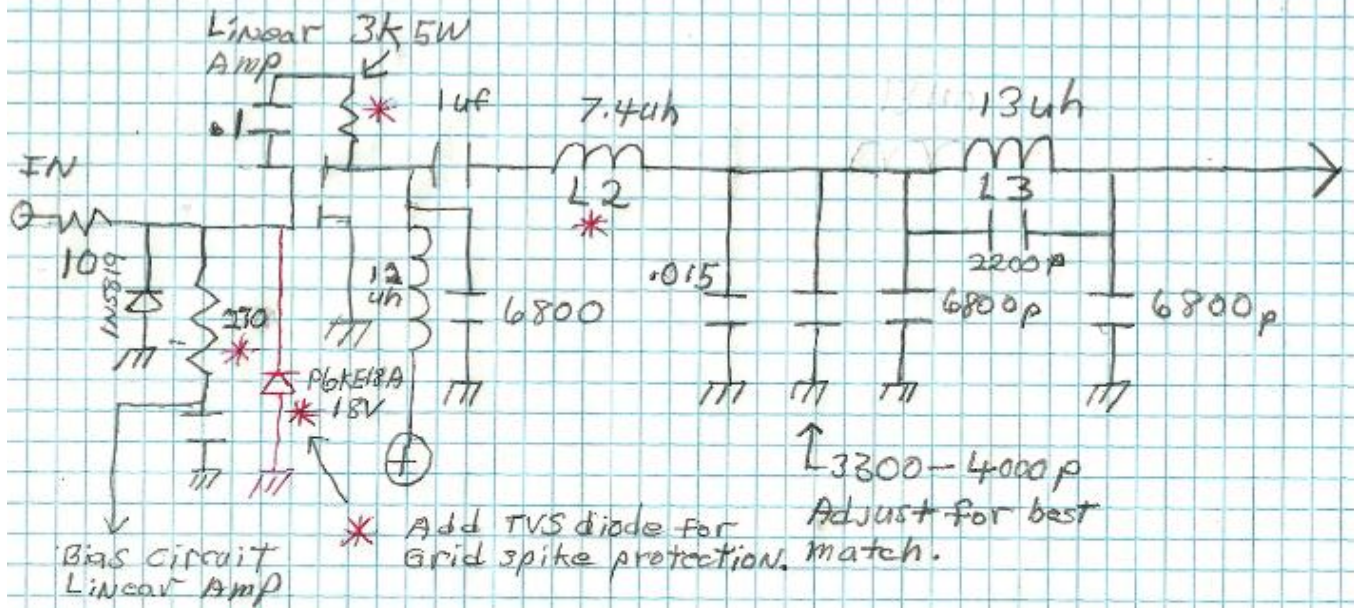 Linear 3K 5W
Amp
1uf
.1
7.4uh
13uh
IN
L2
L3
10
1N5819
230
12
uh
6800
.015
2200p
6800p
6800p
P6KE18A
18V
3300-4000p
Adjust for best
match.
Add TVS diode for
Grid spike protection.
Bias circuit
Linear Amp